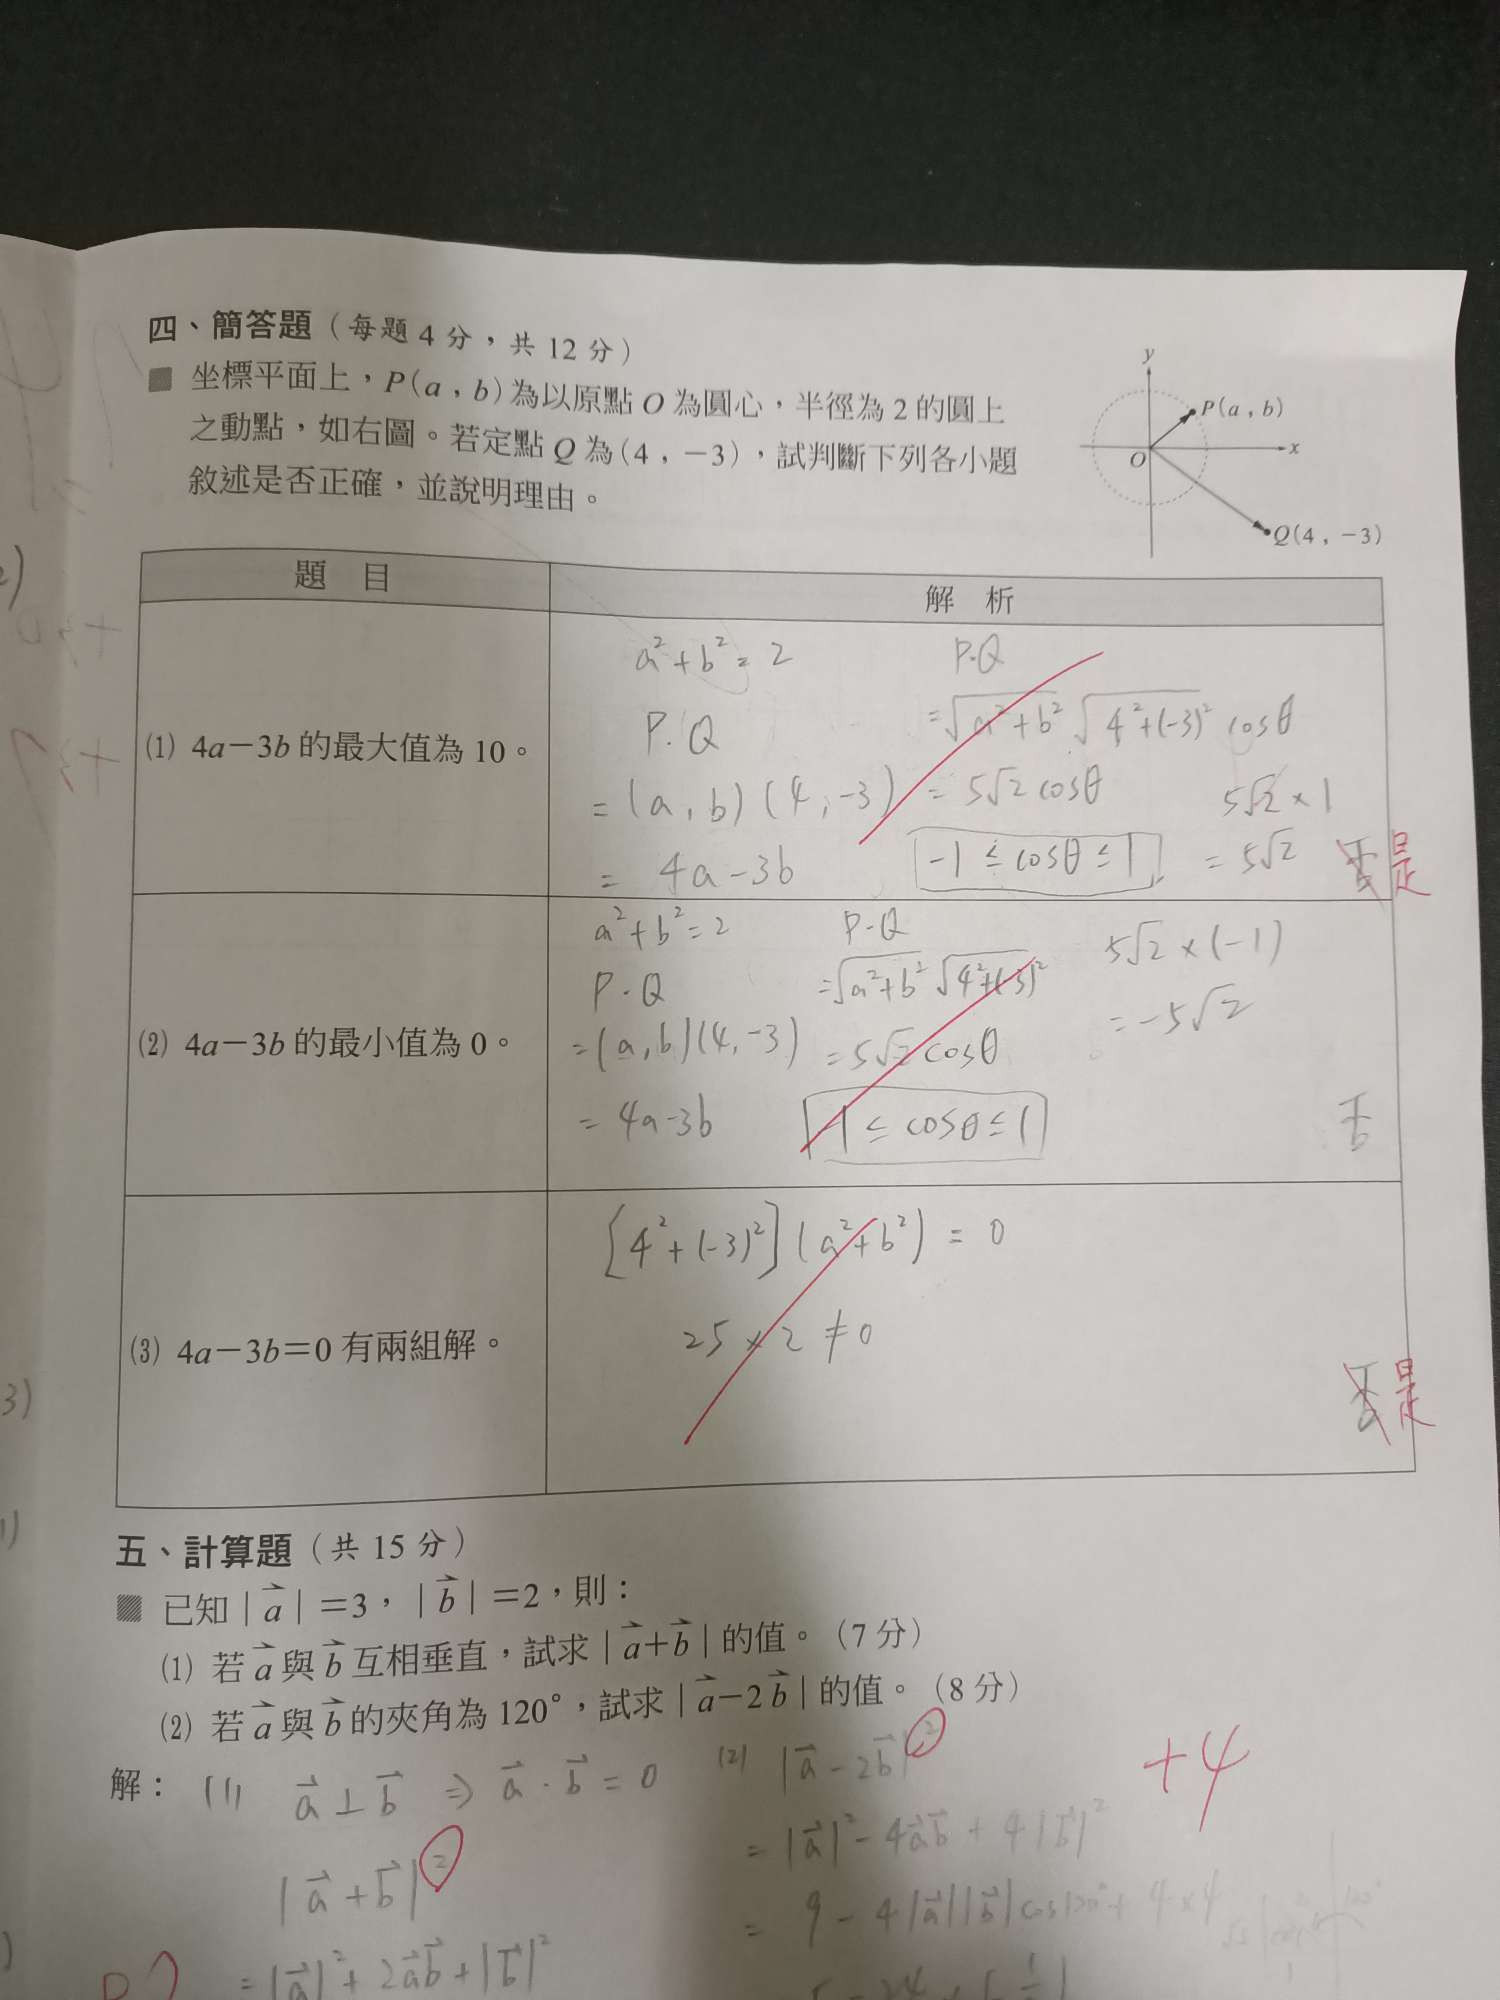 四、簡答題（每題4分，共12分）
坐標平面上，P(a，b)為以原點O為圓心，半徑為2的圓上
之動點，如右圖。若定點Q為(4，−3)，試判斷下列各小題
敘述是否正確，並說明理由。
y
P(a，b)
x
O
Q(4，−3)
題 目
解 析
⑴ 4a−3b的最大值為10。
a²+b²=2
P·Q
=(a,b)(4,-3)
=4a-3b
P·Q
=√a²+b² √4²+(-3)² cosθ
=5√2 cosθ
-1≤cosθ≤1
5√2×1
=5√2
否 是
⑵ 4a−3b的最小值為0。
a²+b²=2
P·Q
=(a,b)(4,-3)
=4a-3b
P-Q
=√a²+b² √4²+(-3)²
=5√2 cosθ
-1≤cosθ≤1
5√2×(-1)
=-5√2
否
⑶ 4a−3b=0有兩組解。
[4²+(-3)²](a²+b²)=0
25×2≠0
否 是
五、計算題（共15分）
已知|a⃗|=3，|b⃗|=2，則：
⑴ 若a⃗與b⃗互相垂直，試求|a⃗+b⃗|的值。（7分）
⑵ 若a⃗與b⃗的夾角為120°，試求|a⃗−2b⃗|的值。（8分）
解：(1) a⃗⊥b⃗ ⇒ a⃗·b⃗=0
|a⃗+b⃗|²
=|a⃗|²+2a⃗b⃗+|b⃗|²
(2) |a⃗-2b⃗|²
=|a⃗|²-4a⃗b⃗+4|b⃗|²
=9-4|a⃗||b⃗|cos120°+4×4
+4